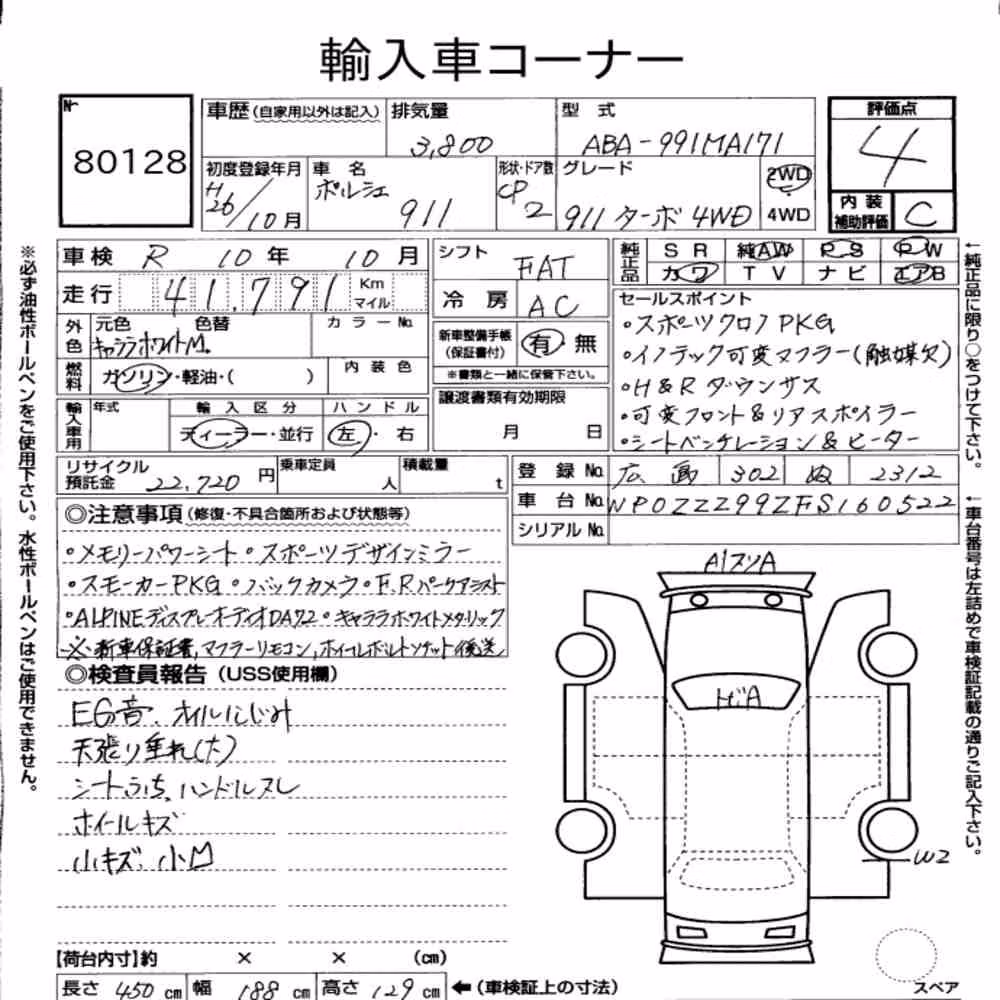 輸入車コーナー
No. 80128
車歴 (自家用以外は記入) 排気量 3,800 型式 ABA-991MA171
評価点 4
内装補助評価 C
初度登録年月 H26/10月 車名 ポルシェ 911 形状・ドア数 CP 2 グレード 911 ターボ 4WD 2WD 4WD
車検 R 10年 10月
走行 41,791 Km マイル
シフト FAT
冷房 AC
純正品 SR 純AW PS PW
カワ TV ナビ エアB
外色 元色 色替 カラーNo.
キャララホワイトM.
燃料 ガソリン・軽油・( ) 内装色
新車整備手帳(保証書付) 有・無
※書類と一緒に保管下さい。
譲渡書類有効期限
月 日
輸入車用 年式 輸入区分 ハンドル
ディーラー・並行 左・右
セールスポイント
・スポーツクロノPKG
・イノテック可変マフラー(触媒欠)
・H&Rダウンサス
・可変フロント&リアスポイラー
・シートベンチレーション&ヒーター
リサイクル預託金 22,720円 乗車定員 人 積載量 t
登録No. 広島 302 ぬ 2312
車台No. WP0ZZZ99ZFS160522
シリアルNo.
◎注意事項 (修復・不具合箇所および状態等)
・メモリーパワーシート ・スポーツデザインミラー
・スモーカーPKG ・バックカメラ ・F.Rパークアシスト
・ALPINEディスプレーオーディオDA7Z ・キャララホワイトメタリック
※新車保証書,マフラーリモコン,ホイールボルトソケット後送
◎検査員報告 (USS使用欄)
EG音、オイルにじみ
天張り垂れ(大)
シートうち、ハンドルスレ
ホイールキズ
小キズ、小凹
A1スリA
トビA
W2
スペア
【荷台内寸】約 × × (cm)
長さ 450 cm 幅 188 cm 高さ 129 cm ←(車検証上の寸法)
※必ず油性ボールペンをご使用下さい。水性ボールペンはご使用できません。
←純正品に限り○をつけて下さい。
←車台番号は左詰めで車検証記載の通りご記入下さい。